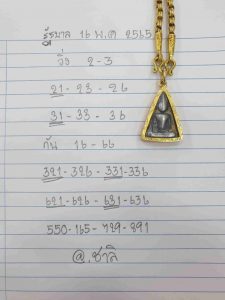 รัฐบาล 16 พ.ค 2565
วิ่ง 2-3
21-23-26
31-33-36
กัน 16-66
321-326-331-336
621-626-631-636
550-165-729-891
@.ชาลี